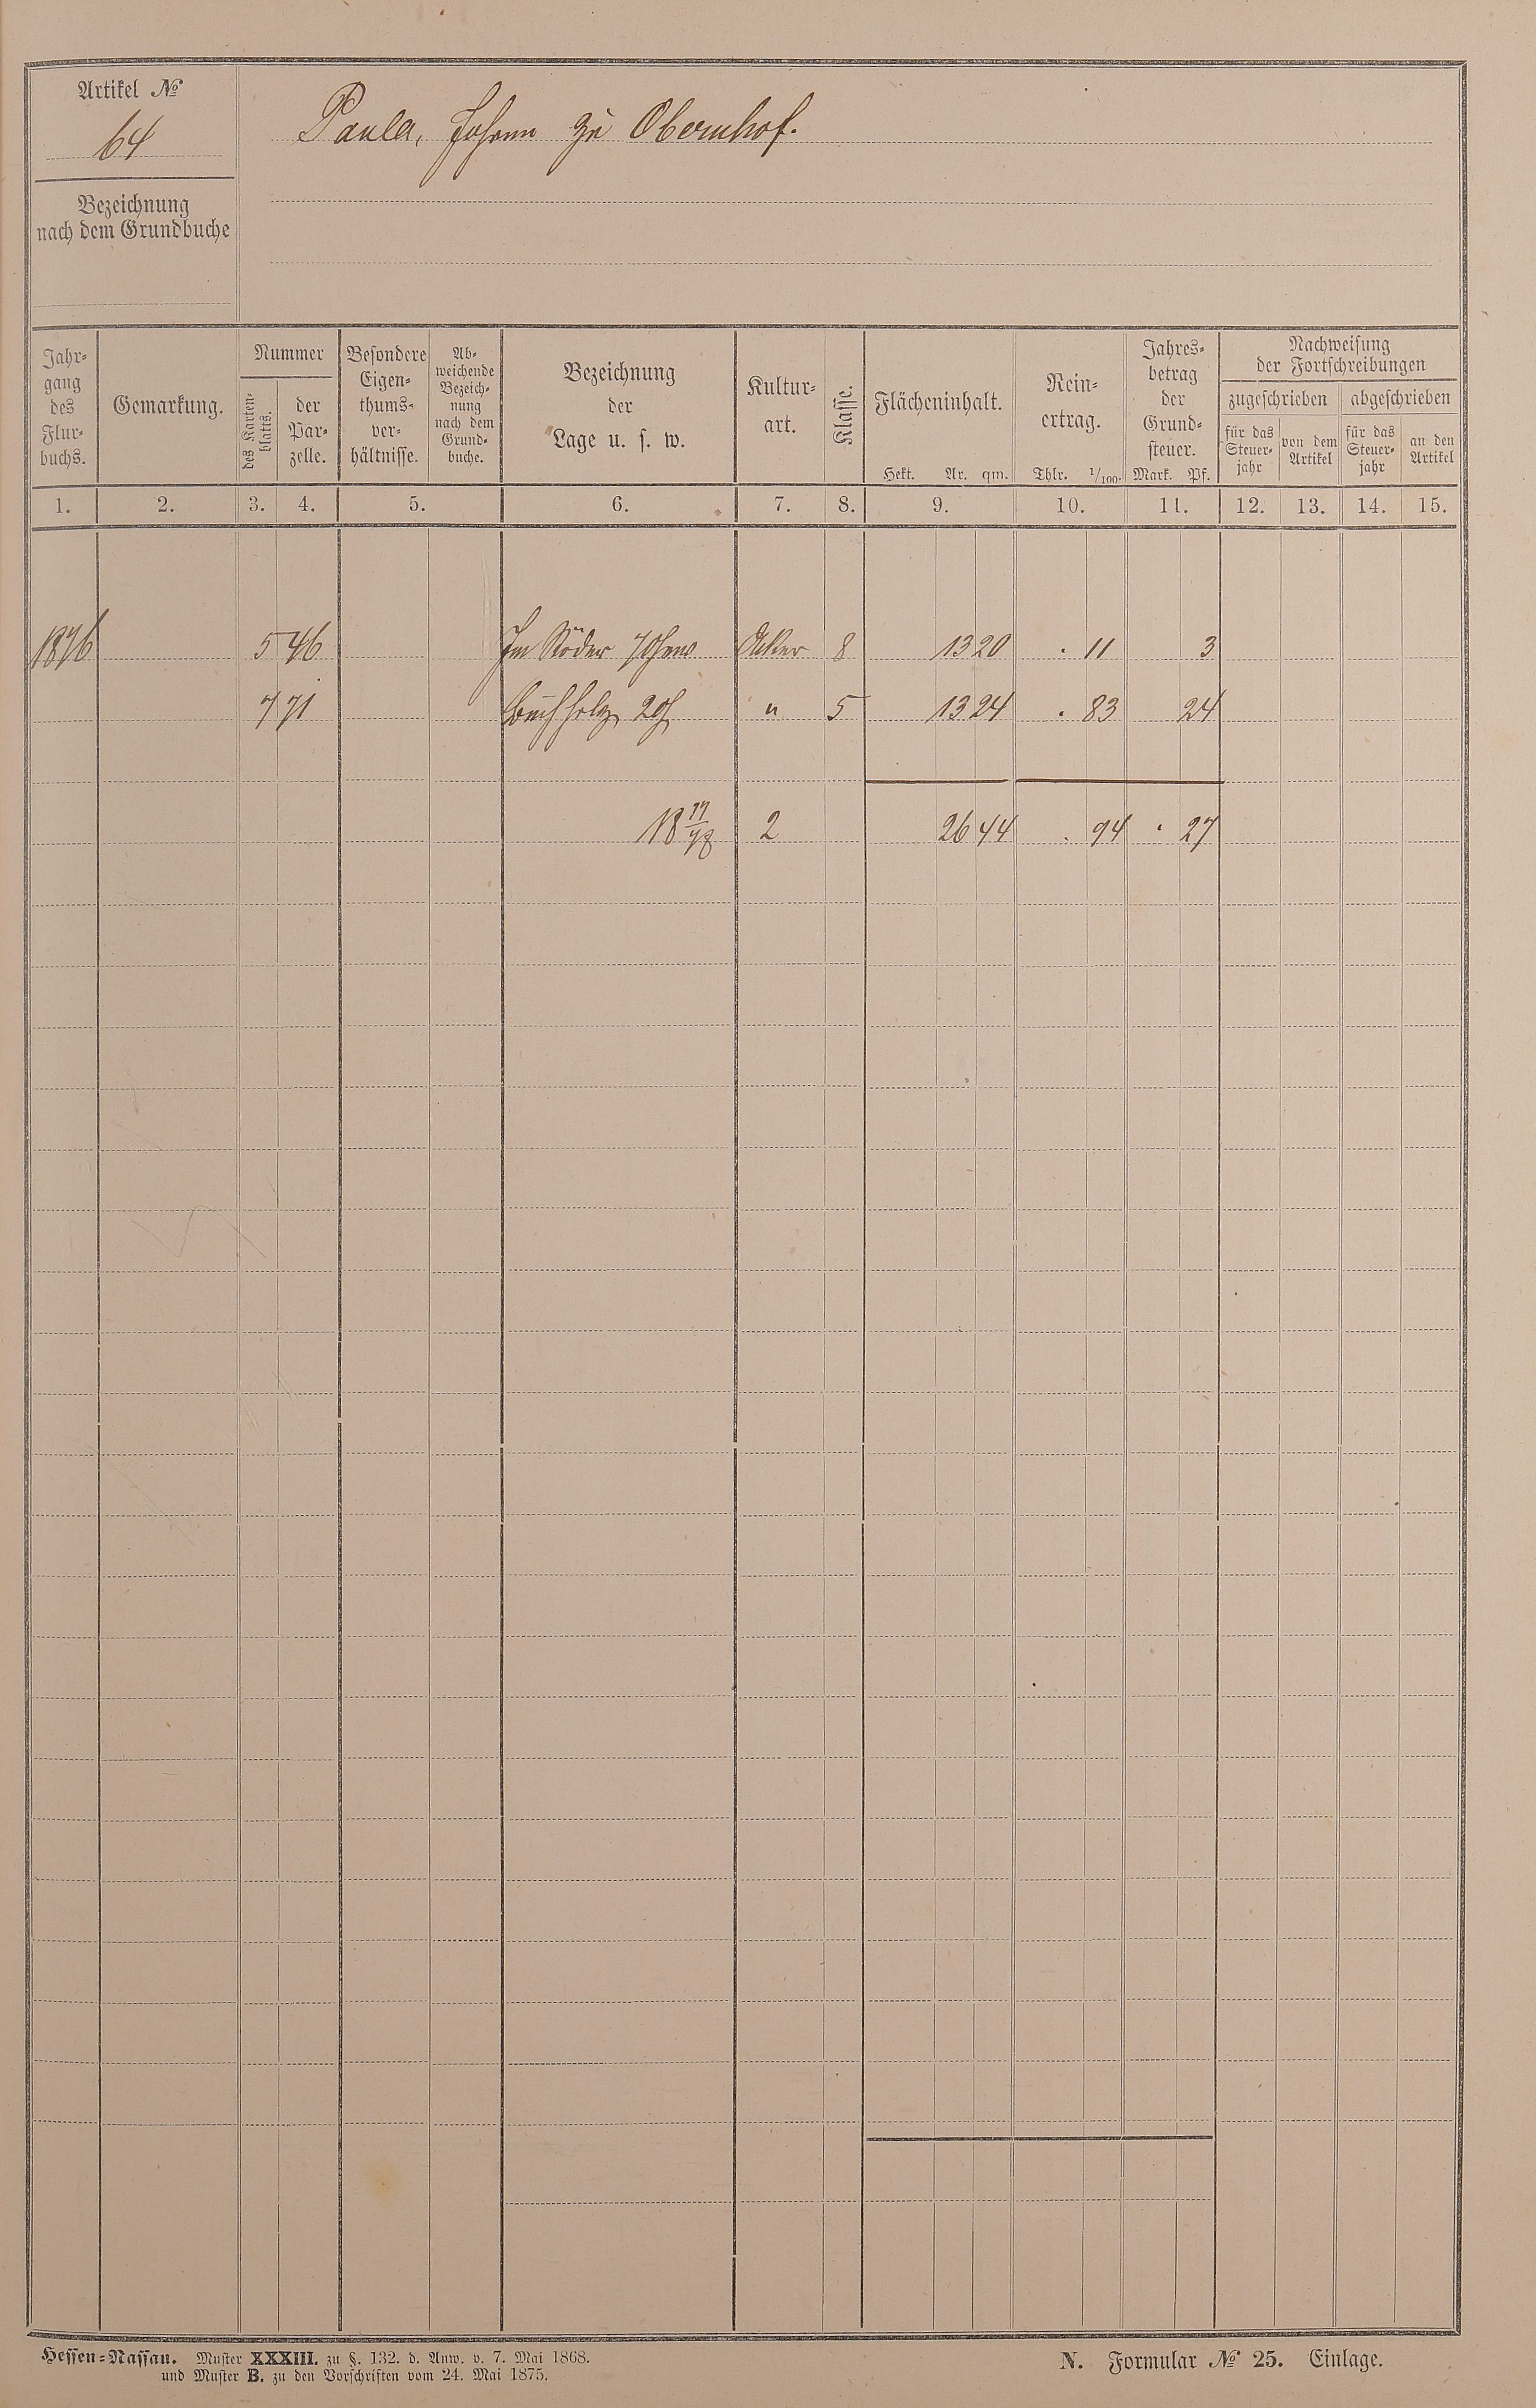 Artikel №
64
Paula, Johann zu Obernhof.
Bezeichnung
nach dem Grundbuche
Jahr-
gang
des
Flur-
buchs.
Gemarkung.
Nummer
des Karten-
blatts.
der
Par-
zelle.
Besondere
Eigen-
thums-
ver-
hältnisse.
Ab-
weichende
Bezeich-
nung
nach dem
Grund-
buche.
Bezeichnung
der
Lage u. s. w.
Kultur-
art.
Klasse.
Flächeninhalt.
Hekt. Ar. qm.
Rein-
ertrag.
Thlr. 1/100.
Jahres-
betrag
der
Grund-
steuer.
Mark. Pf.
Nachweisung
der Fortschreibungen
zugeschrieben
abgeschrieben
für das
Steuer-
jahr
von dem
Artikel
für das
Steuer-
jahr
an den
Artikel
1. 2. 3. 4. 5. 6. 7. 8. 9. 10. 11. 12. 13. 14. 15.
1876 5 46 Im Röder Acker 8 13 20 . 11 3
7 71 Buchholz " 5 13 24 . 83 24
18 77/78 2 26 44 . 94 . 27
Hessen-Nassau. Muster XXXIII. zu §. 132. d. Anw. v. 7. Mai 1868.
und Muster B. zu den Vorschriften vom 24. Mai 1875.
N. Formular № 25. Einlage.